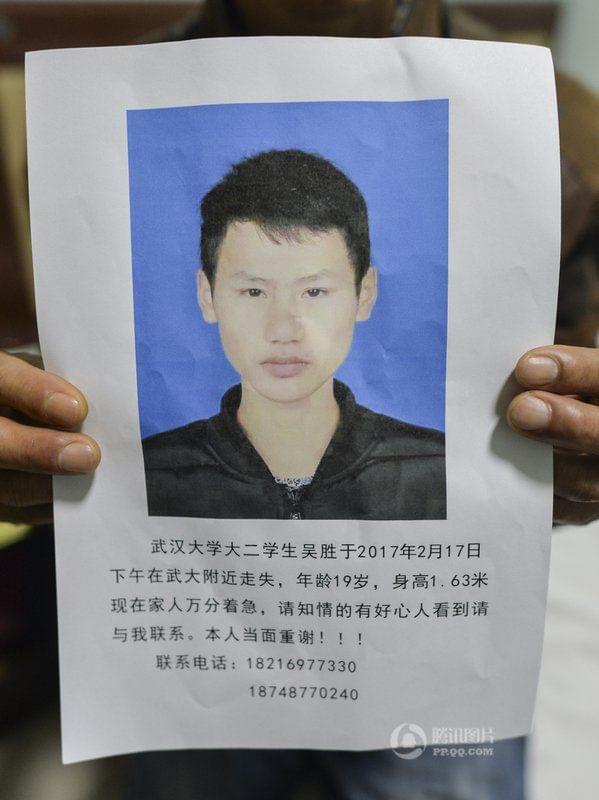 武汉大学大二学生吴胜于2017年2月17日
下午在武大附近走失，年龄19岁，身高1.63米
现在家人万分着急，请知情的有好心人看到请
与我联系。本人当面重谢！！！
联系电话：18216977330
18748770240
腾讯图片
PP.QQ.COM